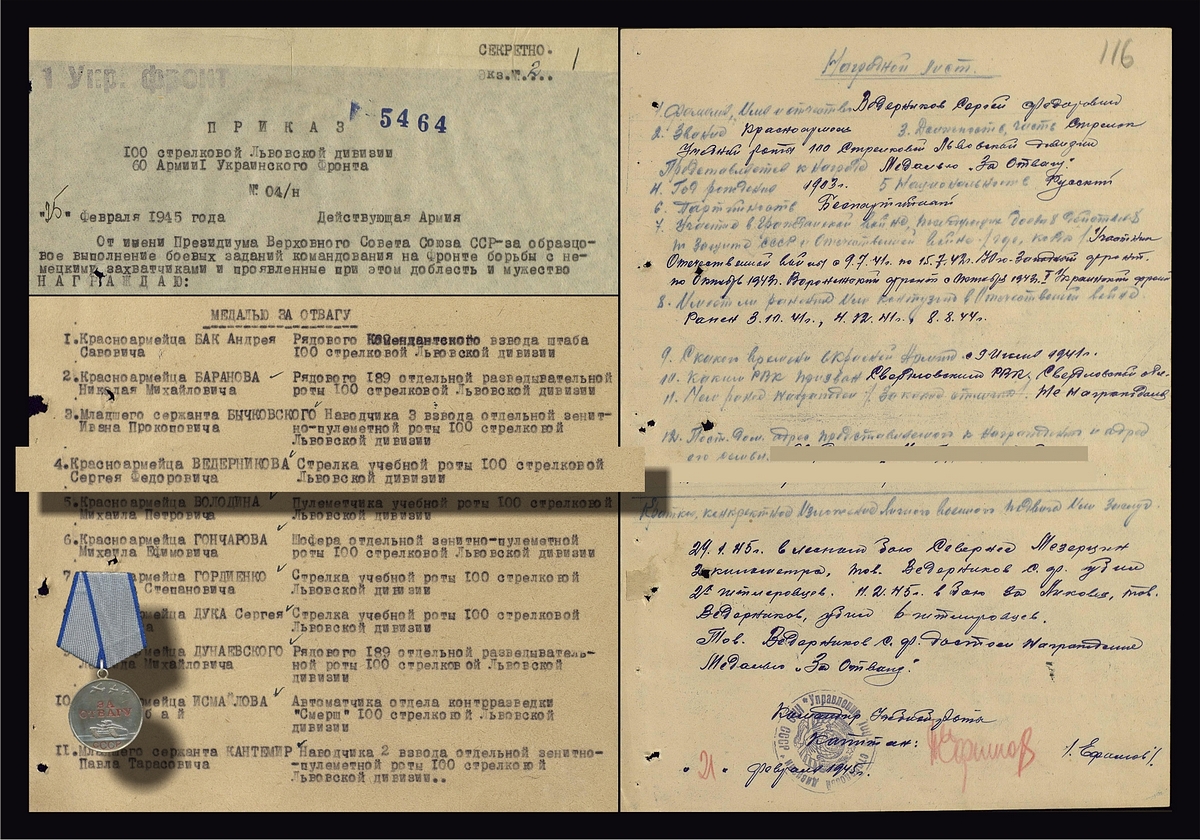 СЕКРЕТНО.
Экз.№.2...
1
1 Укр. фронт
5464
П Р И К А З
100 стрелковой Львовской дивизии
60 Армии I Украинского Фронта
№ 04/н
"25" Февраля 1945 года Действующая Армия
От имени Президиума Верховного Совета Союза ССР-за образцо-
вое выполнение боевых заданий командования на Фронте борьбы с не-
мецкими захватчиками и проявленные при этом доблесть и мужество
Н А Г Р А Ж Д А Ю:
МЕДАЛЬЮ ЗА ОТВАГУ
1. Красноармейца БАК Андрея Рядового Комендантского взвода штаба
Савовича 100 стрелковой Львовской дивизии
2. Красноармейца БАРАНОВА Рядового 189 отдельной разведывательной
Николая Михайловича роты 100 стрелковой Львовской дивизии
3. Младшего сержанта БЫЧКОВСКОГО Наводчика 3 взвода отдельной зенит-
Ивана Прокоповича но-пулеметной роты 100 стрелковой
Львовской дивизии
4. Красноармейца ВЕДЕРНИКОВА Стрелка учебной роты 100 стрелковой
Сергея Федоровича Львовской дивизии
5. Красноармейца ВОЛОДИНА Пулеметчика учебной роты 100 стрелковой
Михаила Петровича Львовской дивизии
6. Красноармейца ГОНЧАРОВА Шофера отдельной зенитно-пулеметной
Михаила Ефимовича роты 100 стрелковой Львовской дивизии
7. армейца ГОРДИЕНКО Стрелка учебной роты 100 стрелковой
Степановича Львовской дивизии
армейца ДУКА Сергея Стрелка учебной роты 100 стрелковой
Львовской дивизии
ДУНАЕВСКОГО Рядового 189 отдельной разведыватель-
Михайловича ной роты 100 стрелковой Львовской
дивизии
10. армейца ИСМА ЛОВА Автоматчика отдела контрразведки
б а й "Смерш" 100 стрелковой Львовской
дивизии
11. Младшего сержанта КАНТЕМИР Наводчика 2 взвода отдельной зенитно-
Павла Тарасовича -пулеметной роты 100 стрелковой
Львовской дивизии..
ЗА
ОТВАГУ
СССР
116
Наградной лист.
1. Фамилия, Имя и отчество Ведерников Сергей Федорович
2. Звание Красноармеец 3. Должность, часть Стрелок
Учебной роты 100 Стрелковой Львовской дивизии
Представляется к награде Медалью „За Отвагу"
4. Год рождения 1903г. 5 Национальность Русский
6. Партийность Беспартийный
7. Участие в Гражданской войне, последующих боевых действиях
по защите СССР и Отечественной войне (где, когда) Участник
Отечественной войны с 9.7.41г. по 15.7.42г. Юго-Западный фронт.
по Октябрь 1943г. Воронежский фронт с Октября 1943г. I Украинский фронт
8. Имеет ли ранения или контузии в Отечественной войне.
Ранен 3.10.41г., 4.12.41г., 8.8.44г.
9. С какого времени в Красной Армии с 9 Июля 1941г.
10. Каким РВК призван Свердловским РВК, Свердловской обл.
11. Чем ранее награжден / За какие отличия Не награждался
12. Пост. дом. адрес представляемого к награждению и адрес
его семьи.
Краткое, конкретное изложение личного военного подвига или заслуг.
29.1.45г. в лесном бою Севернее Мезерцин
2 километра, тов. Ведерников С.Ф. убил
2х гитлеровцев. 11.2.45г. в бою за тов.
Ведерников, убил 6 гитлеровцев.
Тов. Ведерников С.Ф. достоин награждения
Медалью „За Отвагу".
Командир Учебной роты
Капитан: Ефимов /. Ефимов/.
"21" февраля 1945г.